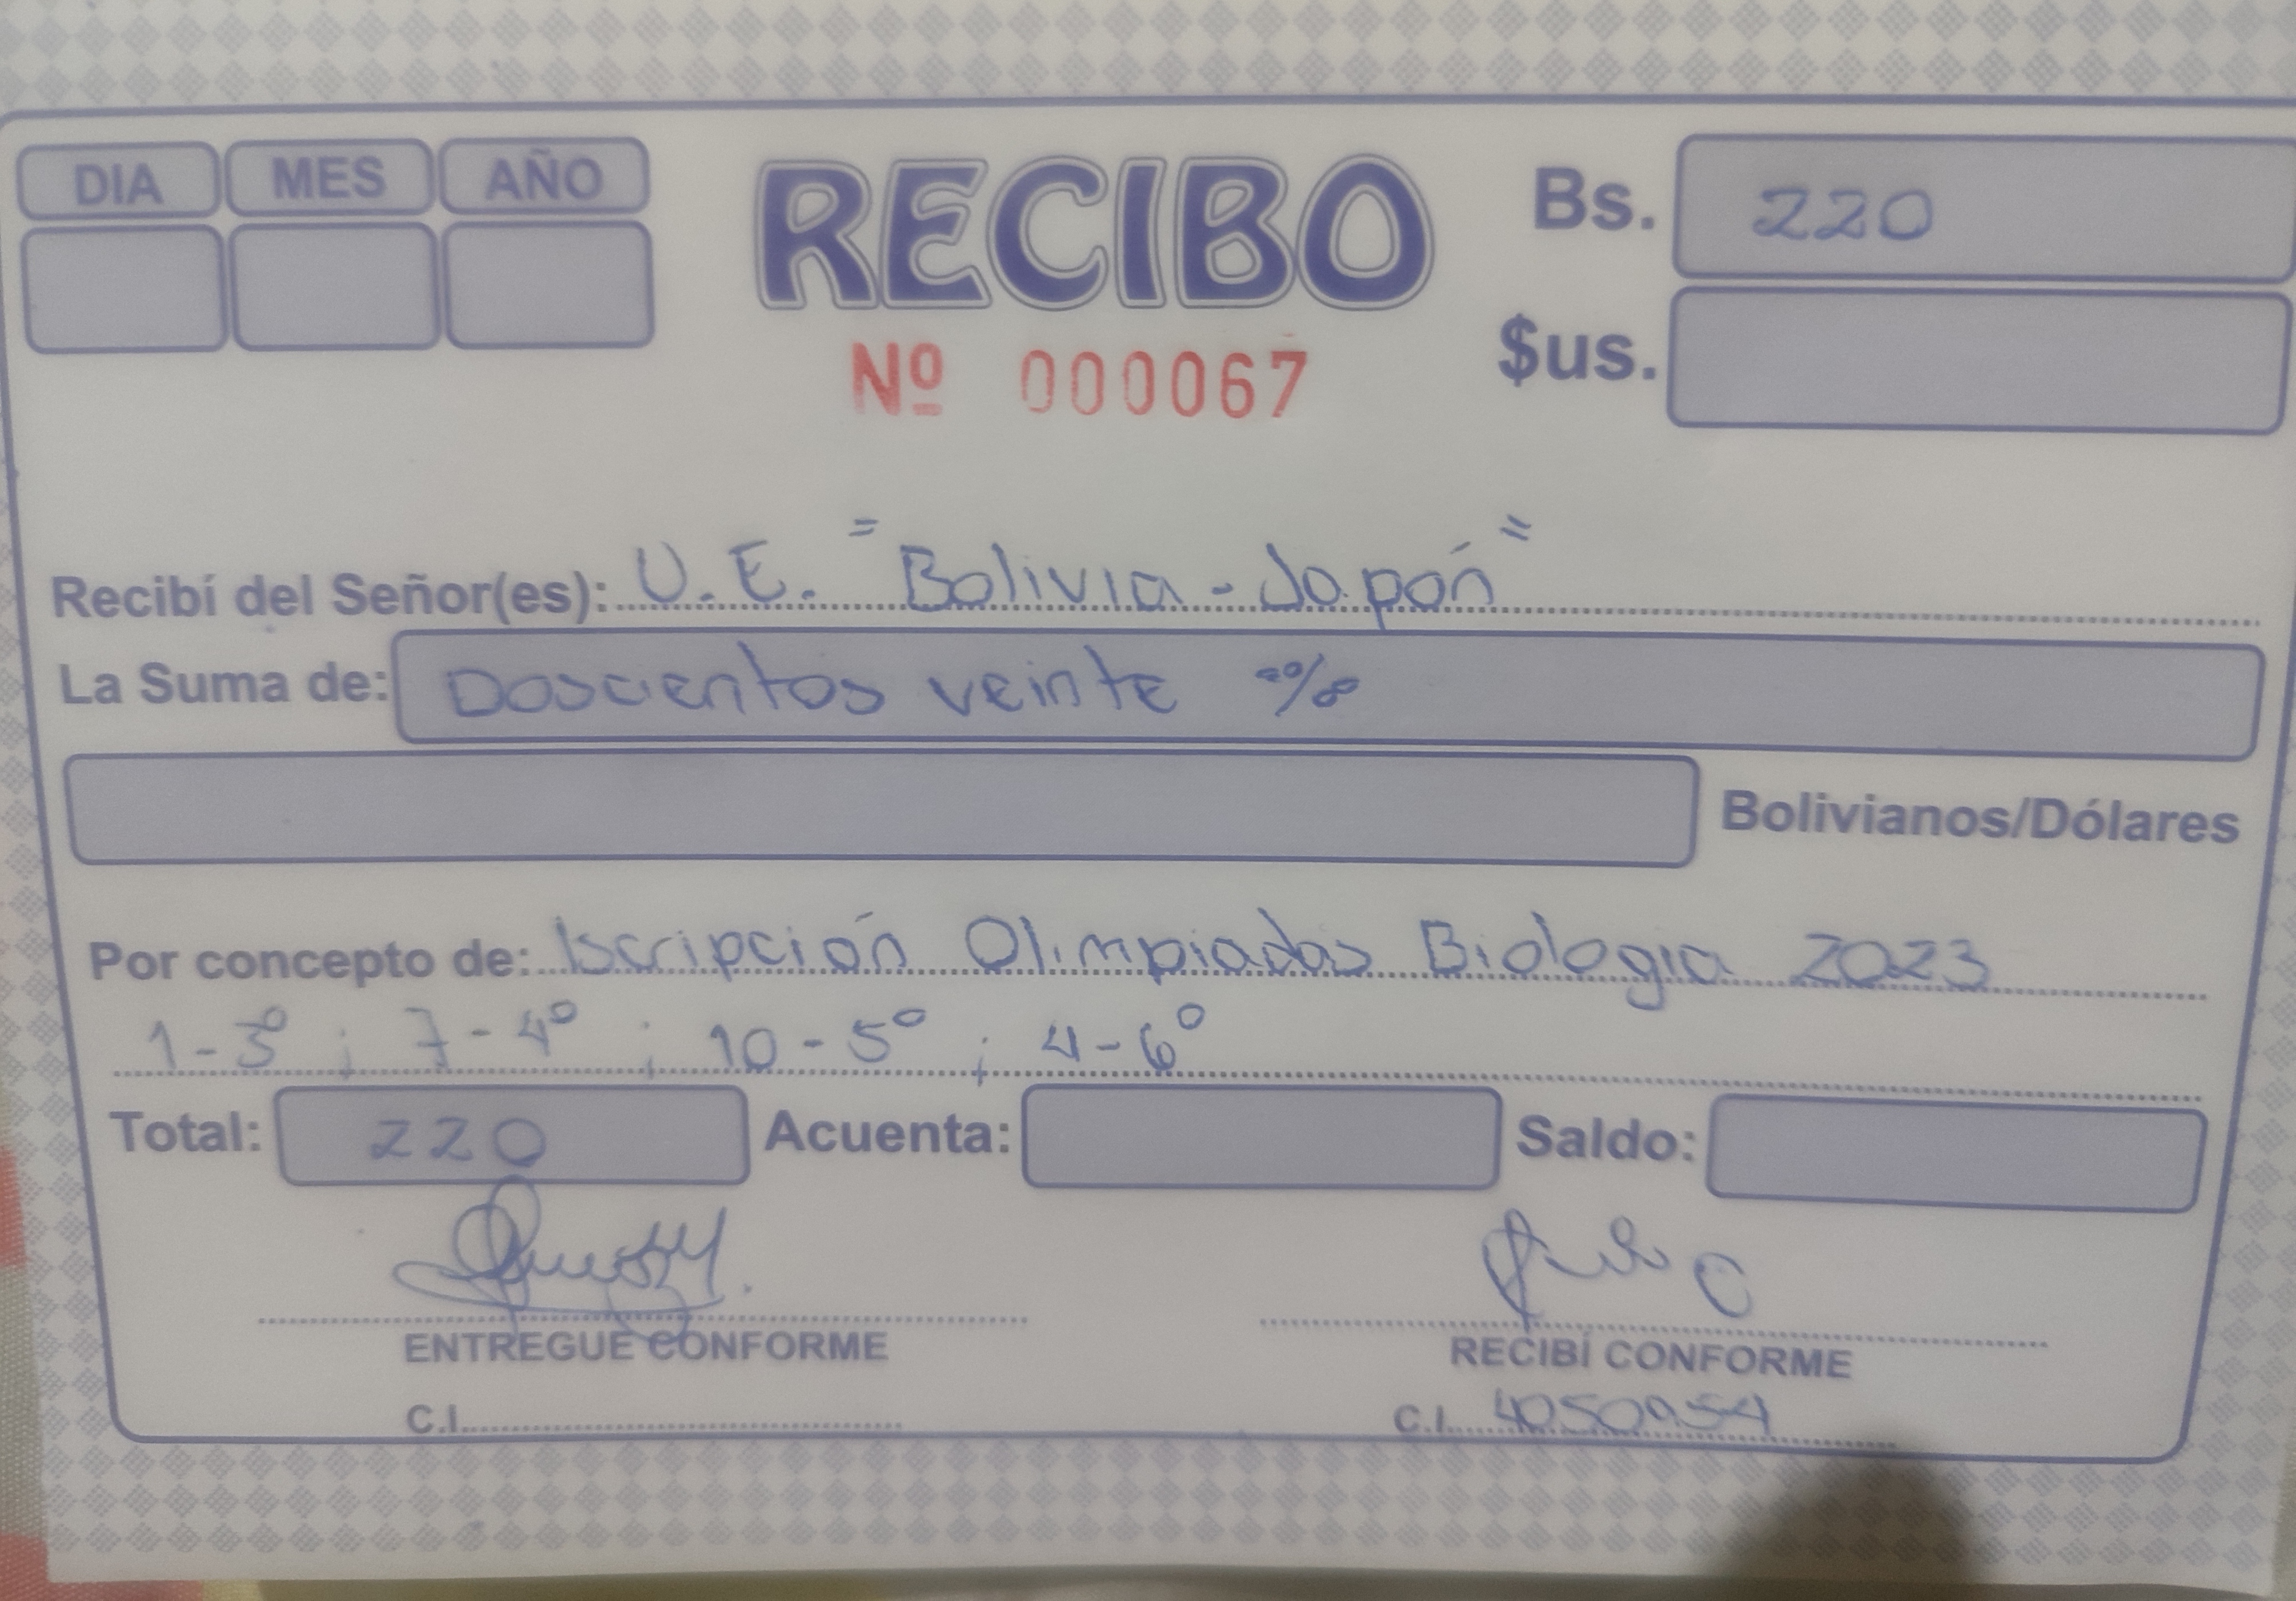 DIA MES AÑO
RECIBO
Nº 000067
Bs. 220
$us.
Recibí del Señor(es): U.E. "Bolivia - Japón"
La Suma de: Doscientos veinte
Bolivianos/Dólares
Por concepto de: Iscripción Olimpiadas Biologia 2023
1-3º ; 7-4º ; 10-5º ; 4-6º
Total: 220 Acuenta: Saldo:
ENTREGUE CONFORME RECIBÍ CONFORME
C.I. C.I. 4050954